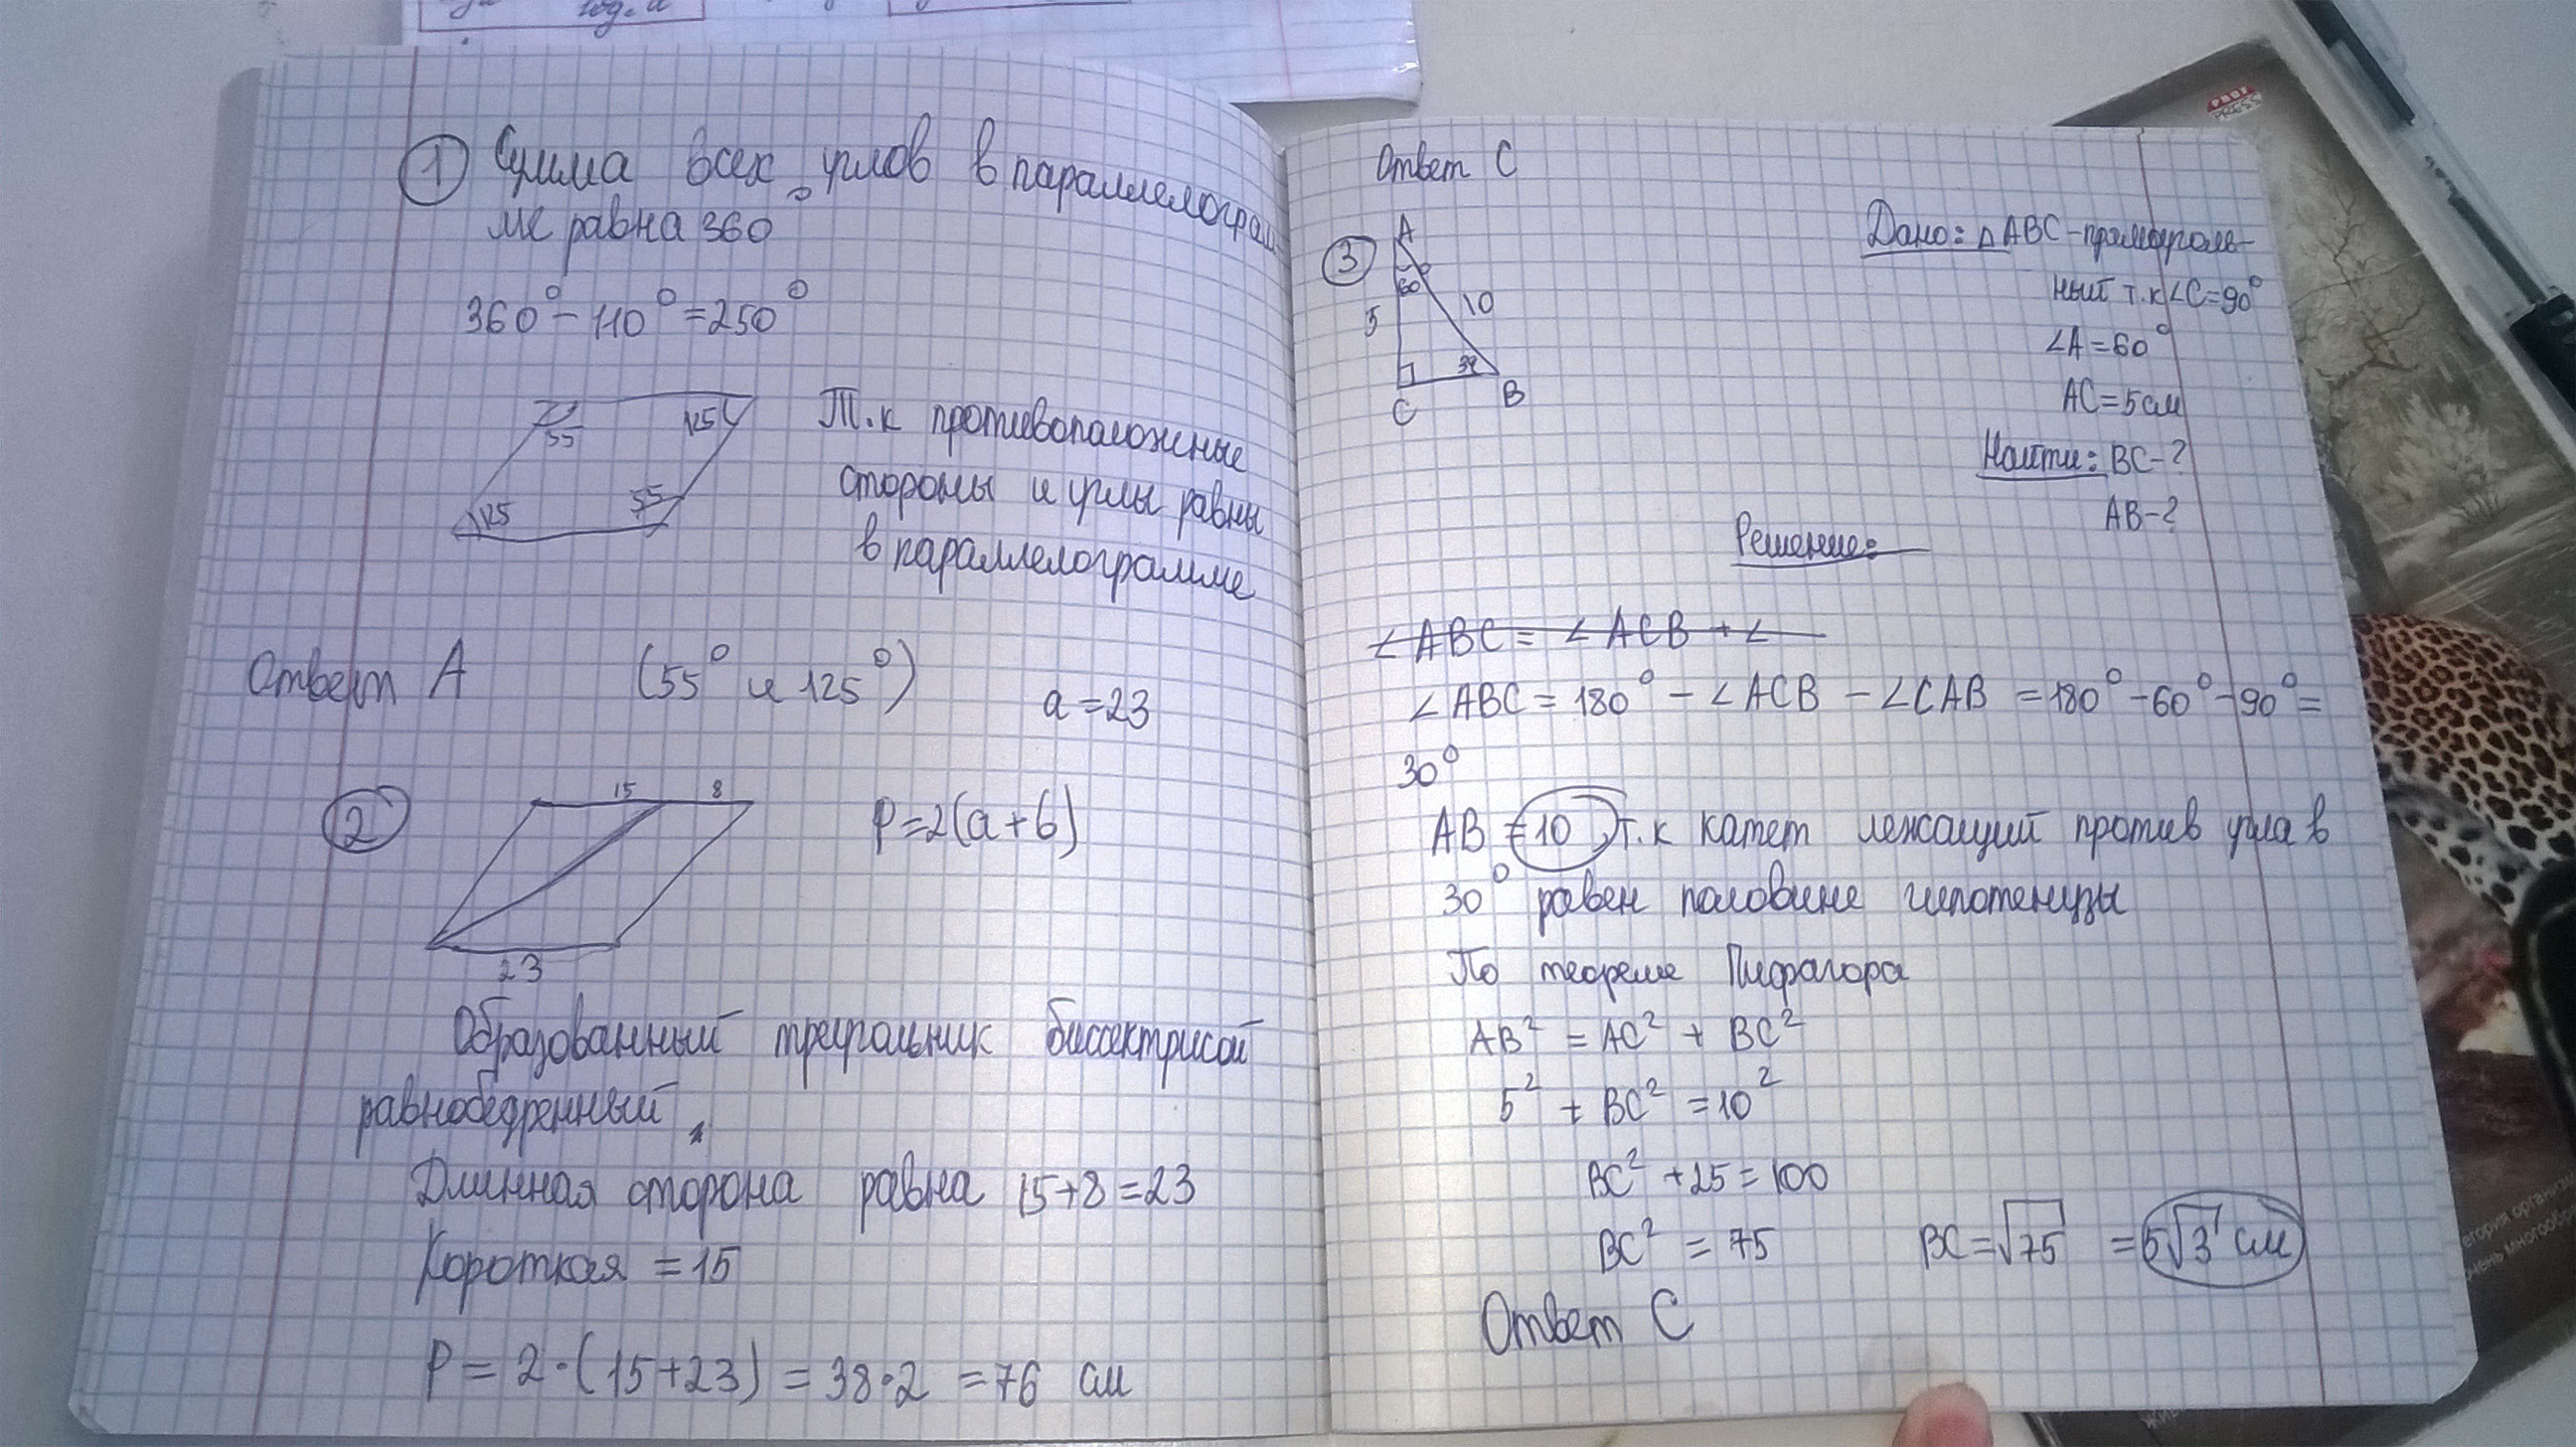 1 Сумма всех углов в параллелограм-
ме равна 360°
360° - 110° = 250°
55
125
125
55
Т.к противоположные
стороны и углы равны
в параллелограмме
Ответ А (55° и 125°)
a = 23
2
15 8
23
P=2(a+b)
Образованный треугольник биссектрисой
равнобедренный
Длинная сторона равна 15+8=23
Короткая = 15
P = 2·(15+23) = 38·2 = 76 см
Ответ С
3
A
60°
5
10
30
C
B
Дано: △ABC-прямоуголь-
ный т.к ∠C=90°
∠A=60°
AC=5см
Найти: BC-?
AB-?
Решение:
∠ABC = ∠ACB + ∠
∠ABC = 180° - ∠ACB - ∠CAB = 180° - 60° - 90° =
30°
AB = 10, т.к катет лежащий против угла в
30° равен половине гипотенузы
По теореме Пифагора
AB² = AC² + BC²
5² + BC² = 10²
BC² + 25 = 100
BC² = 75 BC=√75 = 5√3 см
Ответ С
PROF
PRESS